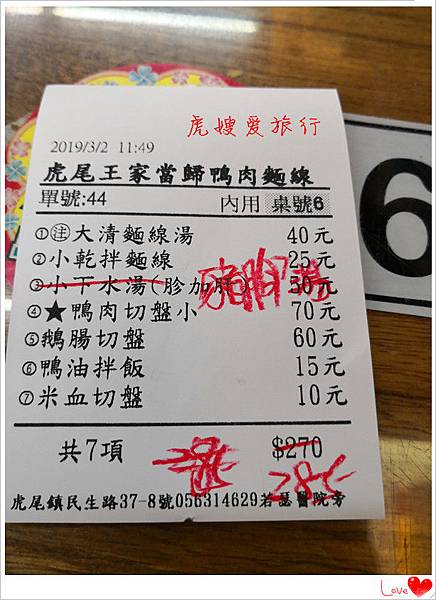 虎嫂愛旅行
2019/3/2 11:49
虎尾王家當歸鴨肉麵線
單號:44 內用 桌號6
①註大清麵線湯 40元
②小乾拌麵線 25元
③小下水湯(胗加肝) 50元
④★鴨肉切盤小 70元
⑤鵝腸切盤 60元
⑥鴨油拌飯 15元
⑦米血切盤 10元
共7項 $270
虎尾鎮民生路37-8號056314629若瑟醫院旁
6
Love